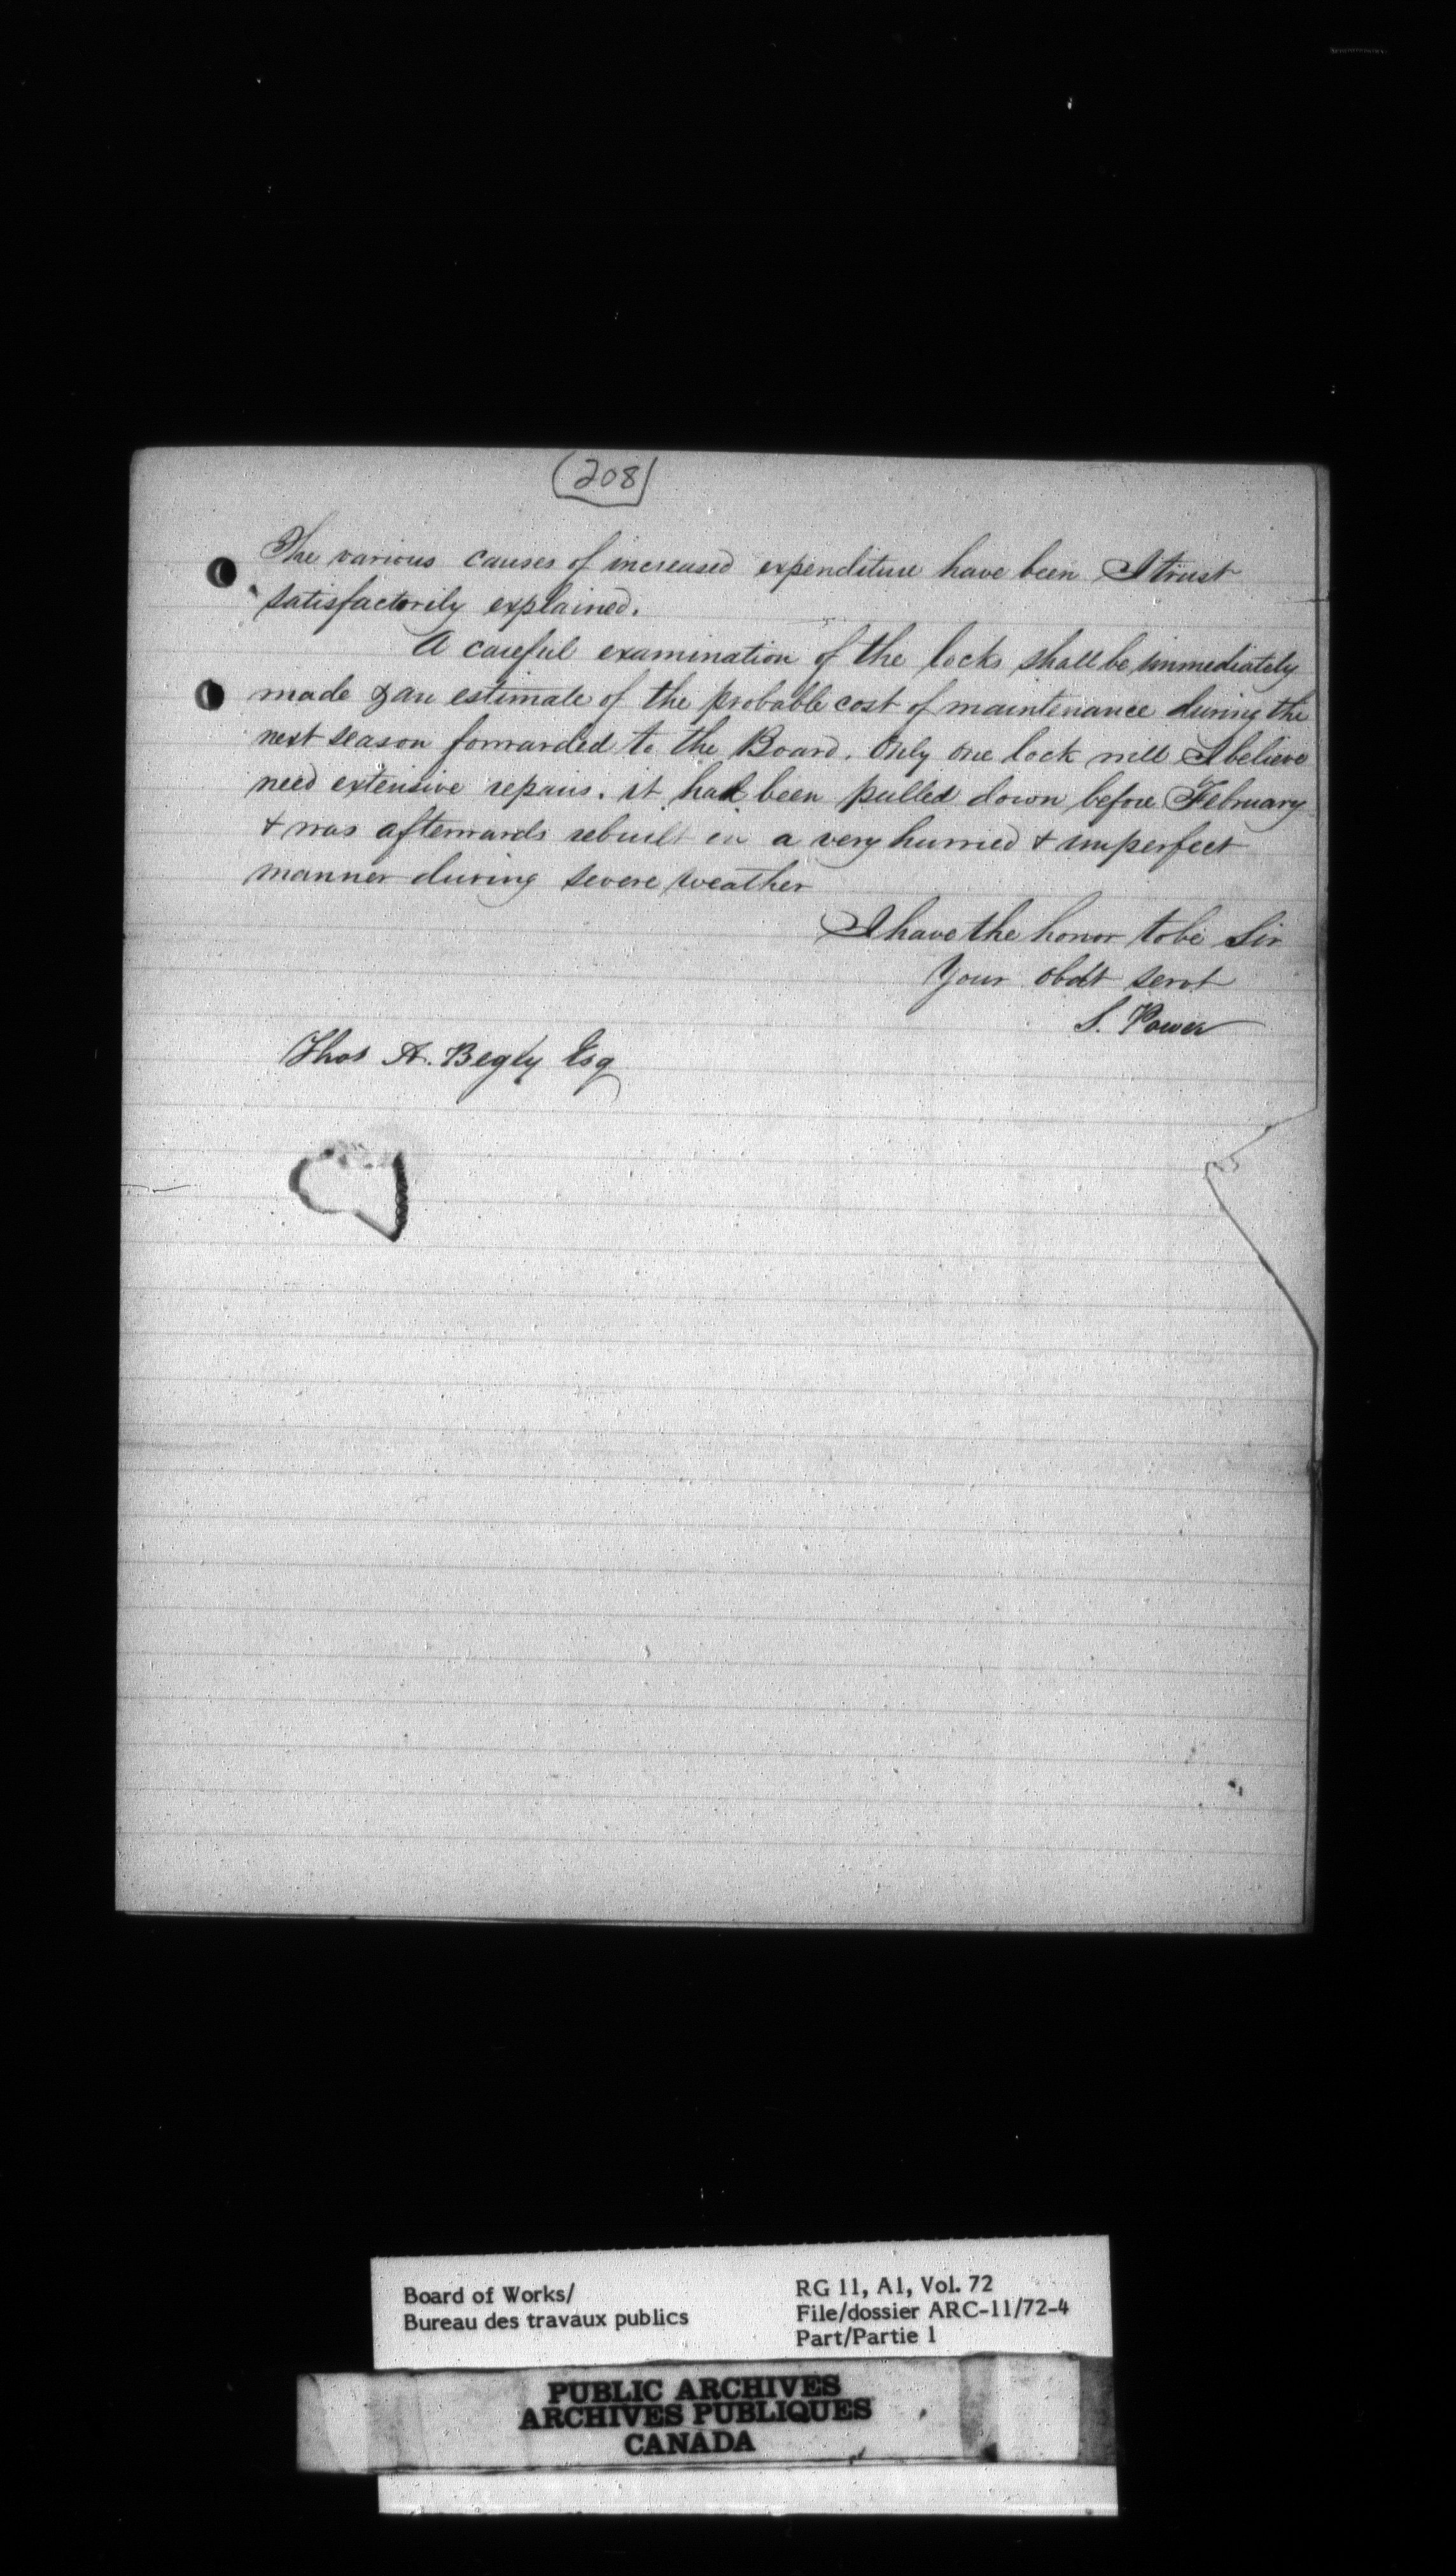 (208)
The various causes of increased expenditure have been I trust
satisfactorily explained.
A careful examination of the locks shall be immediately
made & an estimate of the probable cost of maintenance during the
next season forwarded to the Board. Only one lock will I believe
need extensive repairs. it had been pulled down before February
& was afterwards rebuilt in a very hurried & imperfect
manner during severe weather
I have the honor to be Sir
Your obdt servt
S. Power
Thos A. Begly Esq
Board of Works/
Bureau des travaux publics
RG 11, A1, Vol. 72
File/dossier ARC-11/72-4
Part/Partie 1
PUBLIC ARCHIVES
ARCHIVES PUBLIQUES
CANADA